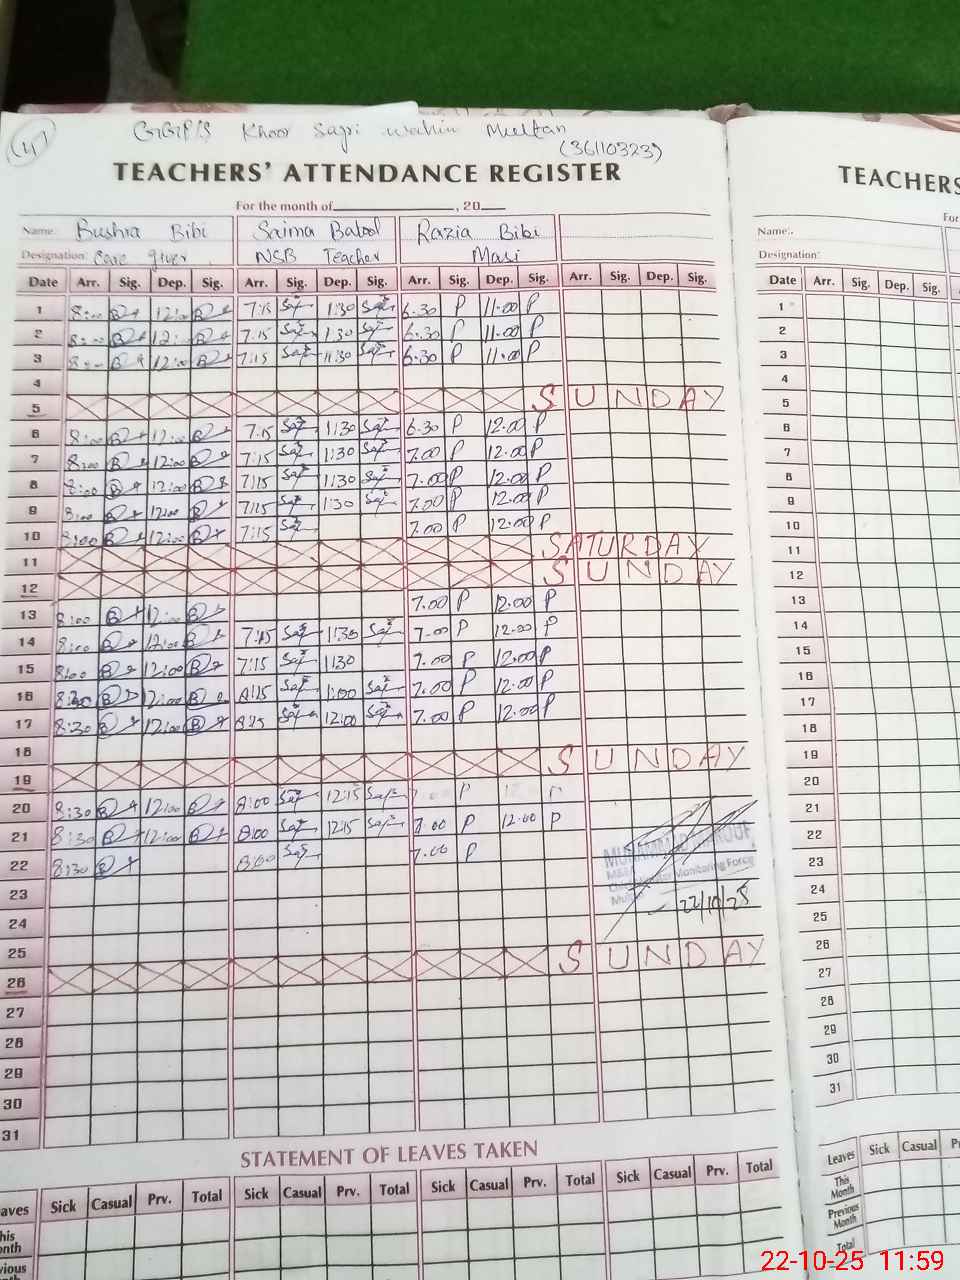 (4)
GGPS Khoor Sapri Wachin Multan
(36110323)
TEACHERS' ATTENDANCE REGISTER
For the month of , 20
Name: Bushra Bibi Saima Batool Razia Bibi
Designation: Care giver NSB Teacher Masi
Date Arr. Sig. Dep. Sig. Arr. Sig. Dep. Sig. Arr. Sig. Dep. Sig. Arr. Sig. Dep. Sig.
1 8:00 12:00 7:15 1:30 6.30 P 11.00 P
2 8:00 12: 7:15 1:30 6.30 P 11.00 P
3 8:00 12:00 7:15 1:30 6.30 P 11.00 P
4
5 SUNDAY
6 8:00 12:00 7:15 1:30 6.30 P 12.00 P
7 8:00 12:00 7:15 1:30 7.00 P 12.00 P
8 8:00 12:00 7:15 1:30 7.00 P 12.00 P
9 8:00 12:00 7:15 1:30 7.00 P 12.00 P
10 8:00 12:00 7:15 7.00 P 12.00 P
11 SATURDAY
12 SUNDAY
13 8:00 12:00 7.00 P 12.00 P
14 8:00 12:00 7:15 1:30 7.00 P 12.00 P
15 8:00 12:00 7:15 1:30 7.00 P 12.00 P
16 8:30 12:00 8:15 1:00 7.00 P 12.00 P
17 8:30 12:00 8:15 12:00 7.00 P 12.00 P
18
19 SUNDAY
20 8:30 12:00 8:00 12:15 P
21 8:30 12:00 8:00 12:15 7.00 P 12.00 P
22 8:30 8:00 7.00 P
23
24
25
26 SUNDAY
27
28
29
30
31
MUHAMMAD
MEA
Chief Minister Monitoring Force
Multan
22/10/25
STATEMENT OF LEAVES TAKEN
aves Sick Casual Prv. Total Sick Casual Prv. Total Sick Casual Prv. Total Sick Casual Prv. Total
his
onth
vious
TEACHERS
For
Name:.
Designation:
Date Arr. Sig. Dep. Sig.
1
2
3
4
5
6
7
8
9
10
11
12
13
14
15
16
17
18
19
20
21
22
23
24
25
26
27
28
29
30
31
Leaves Sick Casual Pr
This
Month
Previous
Month
Total
22-10-25 11:59